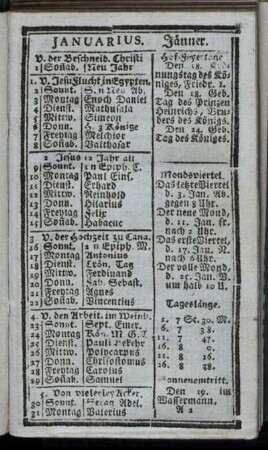 JANUARIUS.
V. der Beschneid. Christi
1 Soñab. Neu Jahr
1. V. Jesu Flucht in Egypten.
2 Sonnt. S. n Neu
3 Montag Enoch Daniel
4 Dienst. Mathusala
5 Mittw. Simeon
6 Donn. H. 3 Könige
7 Freytag Melchior
8 Soñab. Balthasar
2 Jesus 12 Jahr alt
9 Sonnt. 1 n Epiph. C.
10 Montag Paul Eins.
11 Dienst. Erhard
12 Mittw. Reinhold
13 Donn. Hilarius
14 Freytag Felix
15 Soñab. Habacuc
3. V. der Hochzeit zu Cana.
16 Sonnt. 2 n Epiph. M.
17 Montag Antonius
18 Dienst. Crön. Tag
19 Mittw. Ferdinand
20 Donn. Fab. Sebast.
21 Freytag Agnes
22 Soñab. Vincentius
4. V. den Arbeit. im Weinb.
23 Sonnt. Sept. Emer.
24 Montag Kön. M G. T.
25 Dienst. Pauli Bekehr
26 Mittw. Polycarpus
27 Donn. Chrisostomus
28 Freytag Carolus
29 Soñab. Samuel
5. Von vielerley Acker.
30 Sonnt. Adel.
31 Montag Valerius
Jänner.
Hof-Feyertage
Den 18. Krö-
nungstag des Kö-
niges, Friedr. I.
Den 18. Geb.
Tag des Prinzen
Heinrichs, Bru-
ders des Königs.
Den 24. Geb.
Tag des Königes.
Mondsviertel.
Das letzte Viertel
d. 3. Jan. Ab.
gegen 9 Uhr.
Der neue Mond,
d. 11. Jan. fr.
nach 2 Uhr.
Das erste Viertel,
d. 17. Jan. N.
nach 6 Uhr.
Der volle Mond,
d. 25. Jan. V.
um halb 10 U.
Tageslänge.
1. 7 St. 30 M.
6. 7 38.
11. 7 47.
16. 8 0.
21. 8 16.
26. 8 38.
Sonneneintritt.
Den 19. im
Wassermann.
A 2